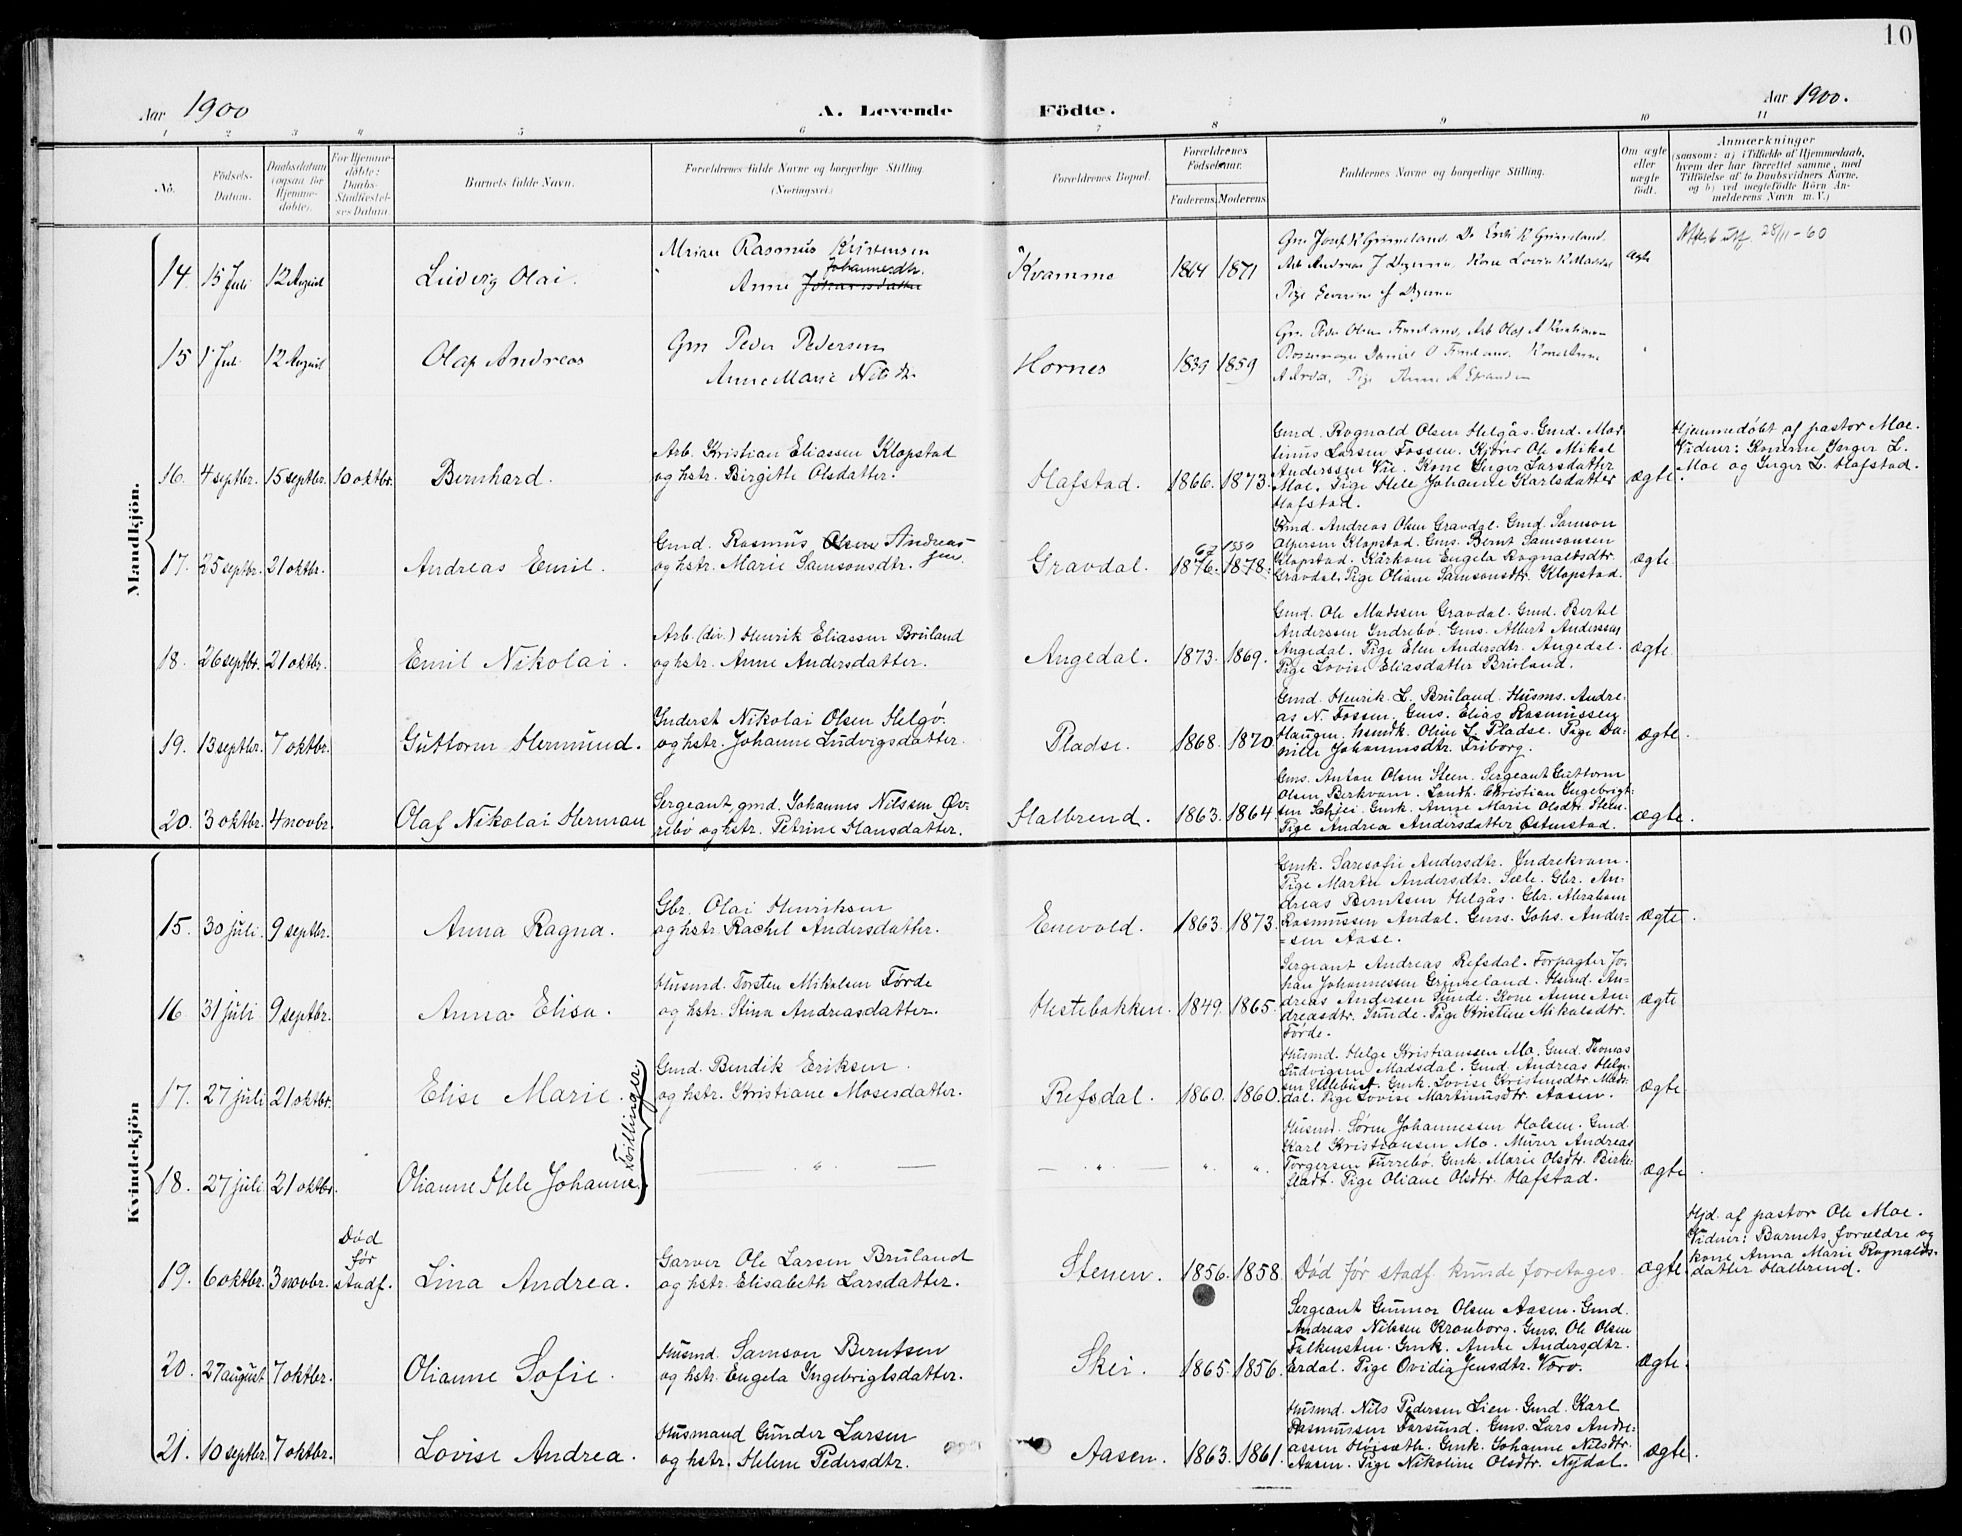 10
Aar 1900
A. Levende
Födte.
Aar 1900.
1 2 3 4 5 6 7 8 9 10 11
No.
Födsels-
Datum.
Daabsdatum
(ogsaa for
Hjemme-
döbte).
For Hjemme-
döbte:
Daabs-
Stadfæstel-
ses Datum.
Barnets fulde Navn.
Forældrenes fulde Navne og borgerlige Stilling
(Næringsvei.)
Forældrenes Bopæl.
Forældrenes
Födselsaar.
Faderens. Moderens.
Faddernes Navne og borgerlige Stilling.
Om ægte
eller
uægte
födt.
Anmærkninger
(saasom: a) i Tilfælde af Hjemmedaab,
hvem der har forrettet samme, med
Tilföielse af to Daabsvidners Navne,
og b) ved uægtefödte Börn An-
melderens Navn m. V.)
Mandkjön.
14. 15 Juli 12 August
Ludvig Olai.
Rasmus Kristensen
Johannesdtr.
Anne
Kvamme
1864 1871
Ægte
28/11-60
15 1 Juli 12 August
Olaf Andreas
Gm Peder Pedersen
Anne Marie Nilsdtr.
Hornes
1839 1859
16. 4 septbr. 15 septbr. 10 oktbr.
Bernhard.
Arb. Kristian Eliassen Klopstad
og hstr. Birgitte Olsdatter.
Hafstad. 1866. 1873.
Gmd. Rognald Olsen Helgås. Gmd. Mar-
tinus Larsen Fossen. Kjører Ole Mikal
Anderssen Vie. Kone Inger Larsdatter
Moe. Pige Hele Johanne Karlsdatter
Hafstad.
ægte
Hjemmedöbt af pastor Moe.
Vidner: Konerne Inger L.
Moe og Inger L. Hafstad.
17. 25 septbr. 21 oktbr.
Andreas Emil.
Gmd. Rasmus Olsen Andreas-
sen
og hstr. Marie Samsonsdtr.
Gravdal. 1876. 1878.
Gmd. Andreas Olsen Gravdal. Gmd. Samson
Klopstad. Gms. Bernt Samsonsen
Klopstad. Kårkone Engela Rognaldsdtr.
Gravdal. Pige Oliane Samsonsdtr. Klopstad.
ægte
18. 26 septbr. 21 oktbr.
Emil Nikolai.
Arb. (div.) Henrik Eliassen Bruland
og hstr. Anne Andersdatter.
Angedal. 1873. 1869.
Gmd. Ole Madssen Gravdal. Gmd. Bertel
Anderssen Indrebö. Gms. Albert Anderssen
Angedal. Pige Elen Andersdtr. Angedal.
Pige Lovise Eliasdatter Bruland.
ægte
19. 13 septbr. 7 oktbr.
Guttorm Hermund.
Inderst Nikolai Olsen Helgö.
og hstr. Johanne Ludvigsdatter.
Pladse. 1868. 1870
Gmd. Henrik L. Bruland. Husms. Andre-
as N. Fossen. Gms. Elias Rasmussen
Haugen. Oline L. Pladse. Pige Da-
niele Johannesdtr. Friborg.
ægte.
20. 3 oktbr. 4 novbr.
Olaf Nikolai Herman
Sergeant, gmd. Johannes Nilssen Øv-
rebø og hstr. Petrine Hansdatter.
Halbrend. 1863. 1864.
Gms. Anton Olsen Steen. Sergeant Guttorm
Olsen Birkvam. Landh. Christian Ingebrigt-
sen Schjei. Gmk. Anne Marie Olsdtr. Steen.
Pige Andrea Andersdatter Østenstad.
ægte.
Kvindekjön
15. 30 juli. 9 septbr.
Anna Ragna.
Gbr. Olai Henriksen
og hstr. Rachel Andersdatter.
Enevold. 1863. 1873.
Gmk. Saresofie Andersdtr. Indrekvam.
Pige Marthe Andersdtr. Sæle. Gbr. An-
dreas Berntsen Helgås. Gbr. Abraham
Rasmussen Andal. Gms. Johs. Ander-
sen Aase.
ægte.
16 31 juli 9 septbr.
Anna Elisa.
Husmd. Torsten Mikalsen Førde
og hstr. Stina Andreasdatter.
Hestebakken. 1849. 1865.
Sergeant Andreas Refsdal. Forpagter Jo-
han Johannessen Grimeland. Husmd. An-
dreas Andersen Sunde. Kone Anne An-
dreasdtr. Sunde. Pige Kristine Mikalsdtr.
Førde.
ægte
17. 27 juli 21 oktbr.
Elise Marie.
Tvillinger
Gmd. Bendik Eriksen
og hstr. Kristiane Mosesdatter.
Refsdal. 1860. 1860.
Husmd. Helge Kristianssen Mo. Gmd. Thomas
Ludvigsen Madsdal. Gmd. Andreas Helge-
sen Gmk. Lovise Kristensdtr. Mads-
dal. Pige Lovise Martinusdtr. Aasen.
ægte
18. 27 juli. 21 oktbr.
Olianne Hele Johanne.
— " —
— " — " ".
Husmd. Søren Johannessen Halsen. Gmd.
Karl Kristiansen Mo. Murer Andreas
Torgersen Furrebö. Gmk. Marie Olsdtr. Birke-
stadt. Pige Oliane Olsdtr. Hafstad.
ægte.
19. 6 oktbr. 3 novbr.
Død
før
stadf.
Lina Andrea.
Garver Ole Larsen Bruland
og hstr. Elisabeth Larsdatter.
Stenen. 1856. 1858.
Død før stadf. kunde foretages
ægte
Hjd. af pastor Ole Moe.
Vidner: Barnets forældre og
kone Anna Marie Rognalds-
datter Halbrend.
20. 27 august 7 oktbr.
Olianne Sofie.
Husmd. Samson Berntsen
og hstr. Engela Ingebrigtsdatter.
Skei. 1865. 1856.
Sergeant Gunnar Olsen Aasen. Gmd.
Andreas Nilssen Kronborg. Gms. Ole Olsen
Falkensten. Gmk. Anne Andersdtr.
Erdal. Pige Ovidia Jensdtr. Voro.
ægte.
21. 10 septbr. 7 oktbr.
Lovise Andrea.
Husmand Gunder Larsen
og hstr. Helene Pedersdtr.
Aasen. 1863. 1861.
Husmd. Nils Pedersen Lien. Gmd. Karl
Rasmussen Farsund. Gms. Lars Andre-
assen Høisæth. Gmk. Johanne Nilsdtr.
Aasen. Pige Nikoline Olsdtr. Nydal.
ægte.